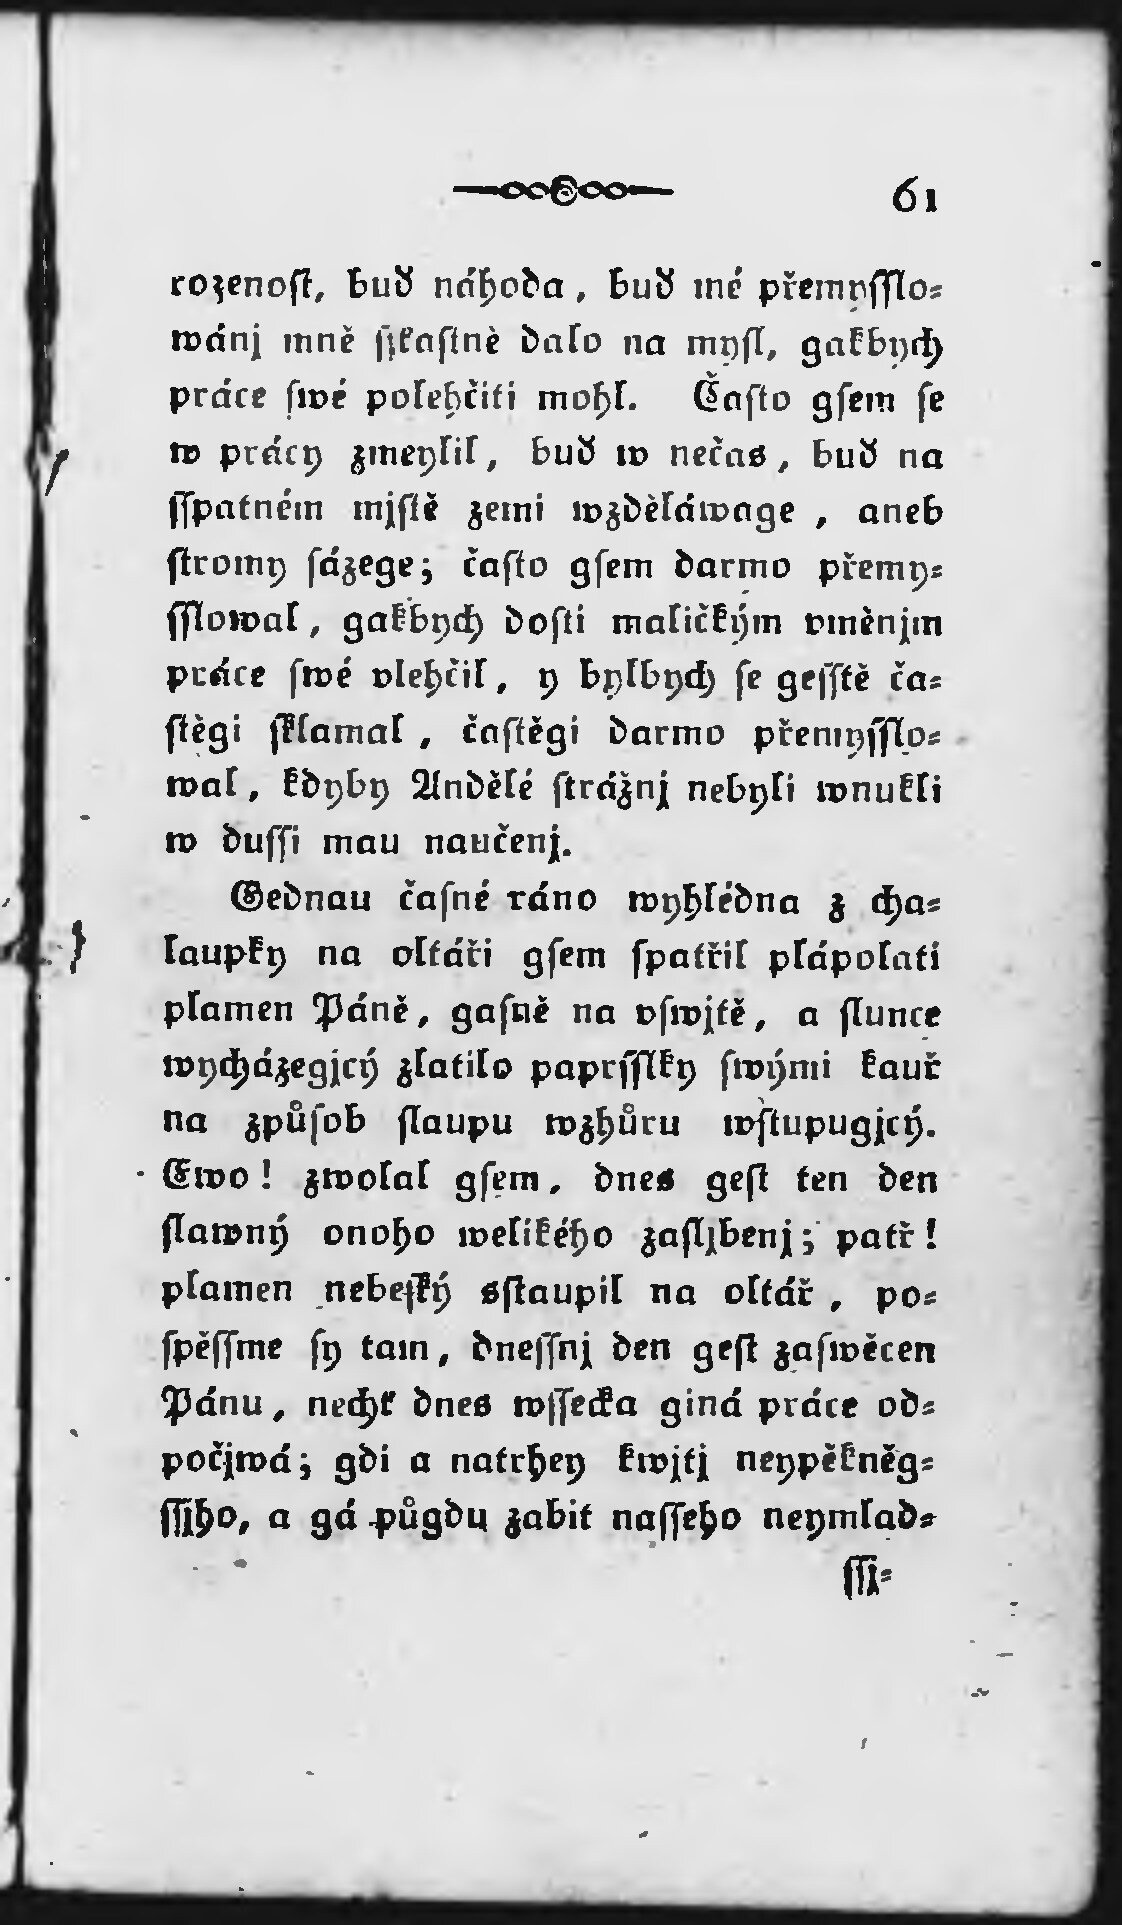 61
rozenoſt, buď náhoda, buď mé přemyſſlo⸗
wánj mně ſſťaſtně dalo na myſl, gakbych
práce ſwé polehčiti mohl. Čaſto gſem ſe
w prácy zmeylil, buď w nečas, buď na
ſſpatném mjſtě zemi wzděláwage, aneb
ſtromy ſázege; čaſto gſem darmo přemy⸗
ſſlowal, gakbych doſti maličkým vměnjm
práce ſwé vlehčil, y bylbych ſe geſſtě ča⸗
ſtěgi ſklamal, čaſtěgi darmo přemyſſlo⸗
wal, kdyby Andělé ſtrážnj nebyli wnukli
w duſſi mau naučenj.
Gednau čaſné ráno wyhlédna z cha⸗
laupky na oltáři gſem ſpatřil plápolati
plamen Páně, gaſně na vſwjtě, a ſlunce
wycházegjcý zlatilo paprſſlky ſwými kauř
na způſob ſlaupu wzhůru wſtupugjcý.
Ewo! zwolal gſem, dnes geſt ten den
ſlawný onoho welikého zaſljbenj; patř!
plamen nebeſký sſtaupil na oltář, po⸗
ſpěſſme ſy tam, dneſſnj den geſt zaſwěcen
Pánu, nechť dnes wſſecka giná práce od⸗
počjwá; gdi a natrhey kwjtj neypěkněg⸗
ſſjho, a gá půgdu zabit naſſeho neymlad⸗
ſſj⸗